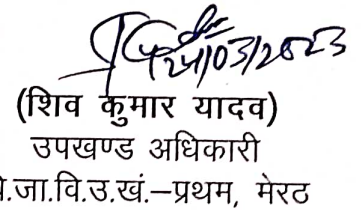 24/03/2023
(शिव कुमार यादव)
उपखण्ड अधिकारी
.जा.वि.उ.खं.–प्रथम, मेरठ